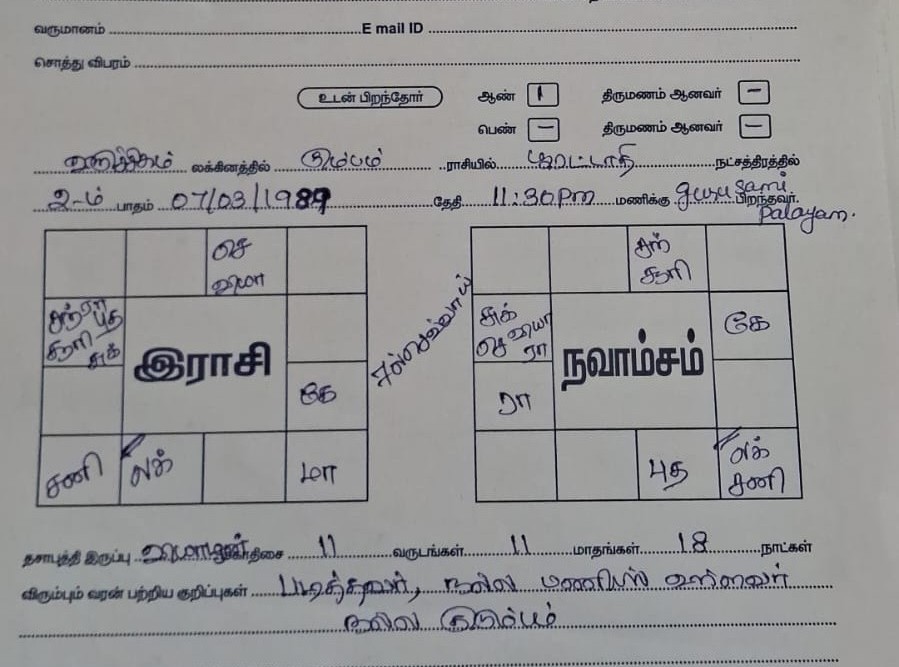 வருமானம் ........ E mail ID ........
சொத்து விபரம் ........
உடன் பிறந்தோர் ஆண் 1 திருமணம் ஆனவர் -
பெண் - திருமணம் ஆனவர் -
லக்கினத்தில் கும்பம் ராசியில் பூரட்டாதி நட்சத்திரத்தில்
2-ம் பாதம் 07/03/1989 தேதி 11:30Pm மணிக்கு gurusami பிறந்தவர்.
palayam.
செ
சூரி
கே
சனி லக் மா
இராசி
சுக்
கே
ரா
புத லக்
சனி
நவாம்சம்
தசாபுத்தி இருப்பு திசை 11 வருடங்கள் 11 மாதங்கள் 18 நாட்கள்
விரும்பும் வரன் பற்றிய குறிப்புகள் படித்தவர், நல்ல உள்ளவர்
நல்ல குடும்பம்